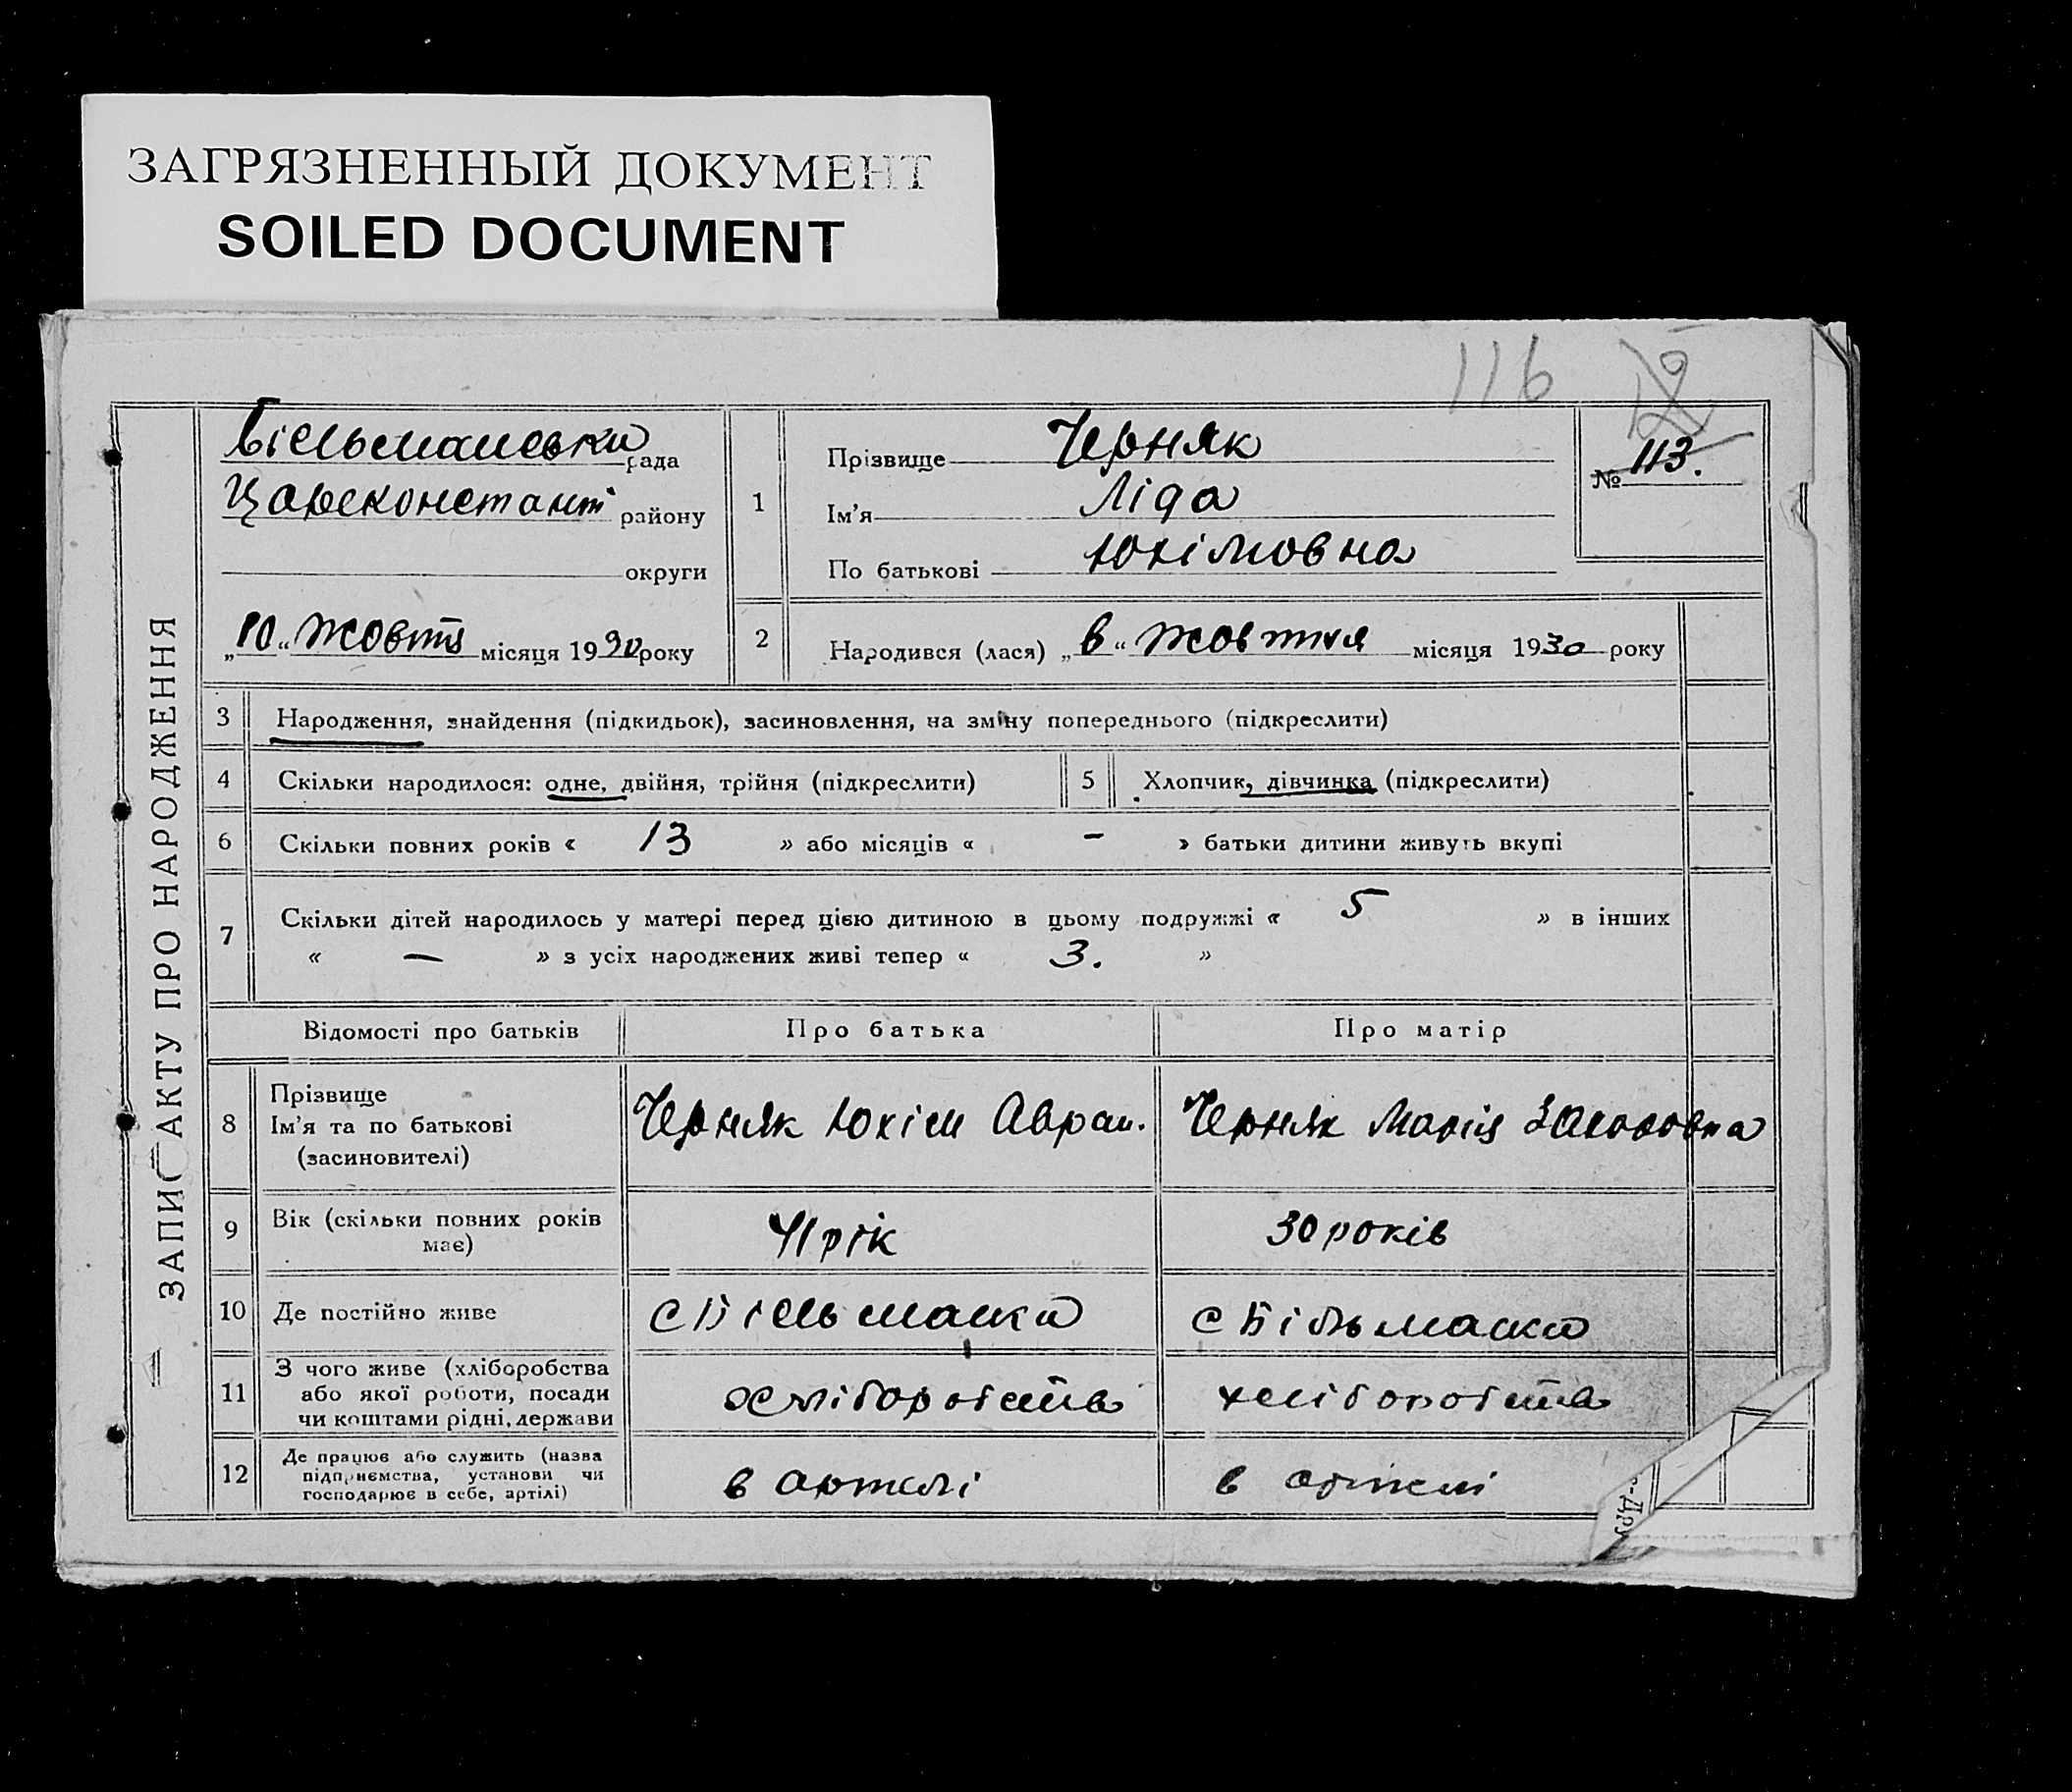 ЗАГРЯЗНЕННЫЙ ДОКУМЕНТ
SOILED DOCUMENT
116
ЗАПИС АКТУ ПРО НАРОДЖЕННЯ
Більманська рада
Цареконстант район​у
округи
„10“ Жовтня місяця 1930 року
1
Прізвище Черняк
Ім'я Ліда
По батькові Юхімовна
№ 113.
2
Народився (лася) „6“ Жовтня місяця 1930 року
3 Народження, знайдення (підкидьок), засиновлення, на зміну попереднього (підкреслити)
4 Скільки народилося: одне, двійня, трійня (підкреслити)
5 Хлопчик, дівчинка (підкреслити)
6 Скільки повних років « 13 » або місяців « – » батьки дитини живуть вкупі
7 Скільки дітей народилось у матері перед цією дитиною в цьому подружжі « 5 » в інших
« — » з усіх народжених живі тепер « 3. »
Відомості про батьків Про батька Про матір
8
Прізвище
Ім'я та по батькові
(засиновителі)
Черняк Юхім Аврам. Черняк Марія
9
Вік (скільки повних років
має)
41 рік 30 років
10 Де постійно живе с Більманка с Більманка
11
З чого живе (хліборобства
або якої роботи, посади
чи коштами рідні, держави
хліборобства хліборобства
12
Де працює або служить (назва
підприємства, установи чи
господарює в себе, артілі)
в артелі в артелі